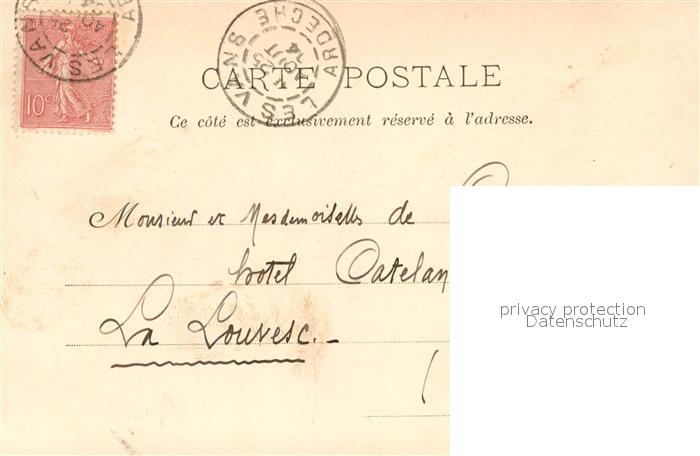 10c
LES VANS
ARDECHE
CARTE POSTALE
Ce côté est exclusivement réservé à l'adresse.
Monsieur et Mesdemoiselles de
hotel Catelan
La Louvesc.-
(
privacy protection
Datenschutz